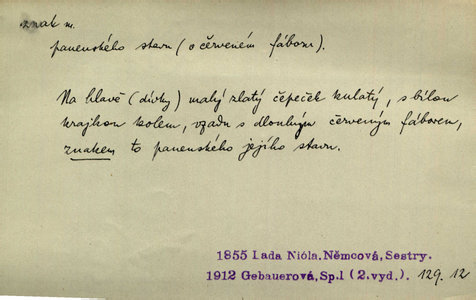 znak m.
panenského stavu (o červeném fáboru).
Na hlavě (dívky) malý zlatý čepeček kulatý, s bílou
krajkou kolem, vzadu s dlouhým červeným fáborem,
znakem to panenského jejího stavu.
1855 Lada Nióla. Němcová, Sestry.
1912 Gebauerová, Sp. I (2. vyd.). 129. 12